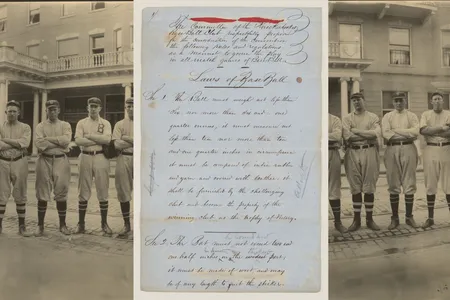 The Committee of the Knickerbocker
Base Ball Club respectfully propose
for the consideration of the Convention
the following rules and regulations
as necessary to govern the play
in all match games of Base Ball.
Laws of Base Ball
Sec 1. The Ball must weigh not less than
six nor more than six and one
quarter ounces, it must measure not
less than ten nor more than ten
and one quarter inches in circumference
it must be composed of india rubber
and yarn and covered with leather. it
shall be furnished by the challenging
club and become the property of the
winning club as the trophy of victory.
Sec 2. The Bat must not exceed two and
one half inches in the widest part,
it must be made of wood and may
be of any length to suit the striker.
B